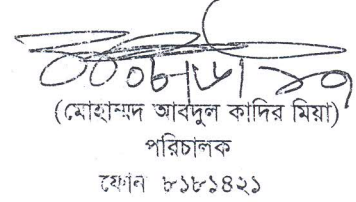 (মোহাম্মদ আবদুল কাদির মিয়া)
পরিচালক
ফোন ৮১৮১৪২১